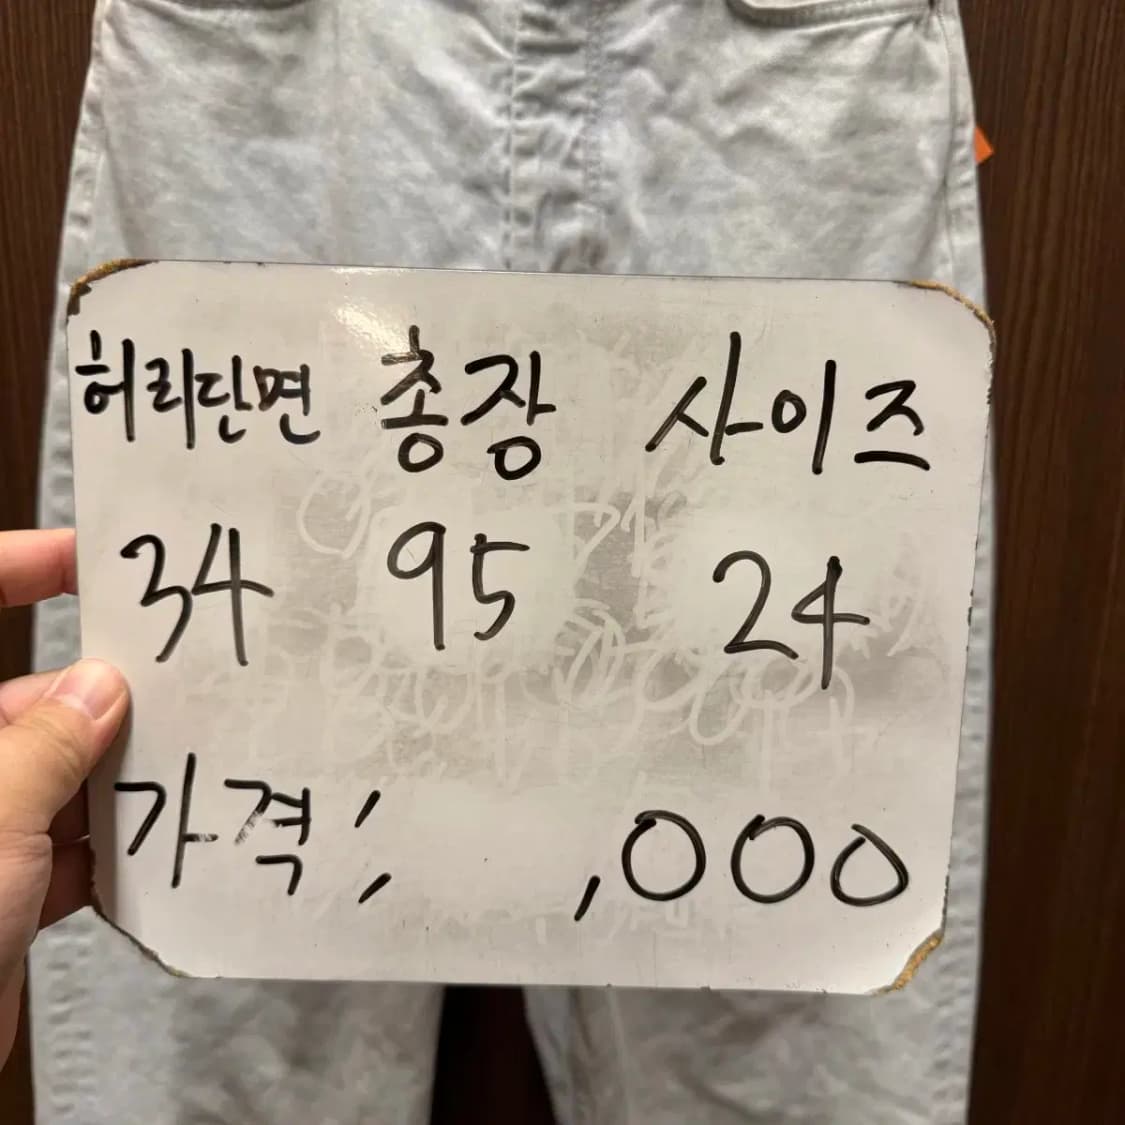 허리단면 총장 사이즈
34 95 24
가격: ,000